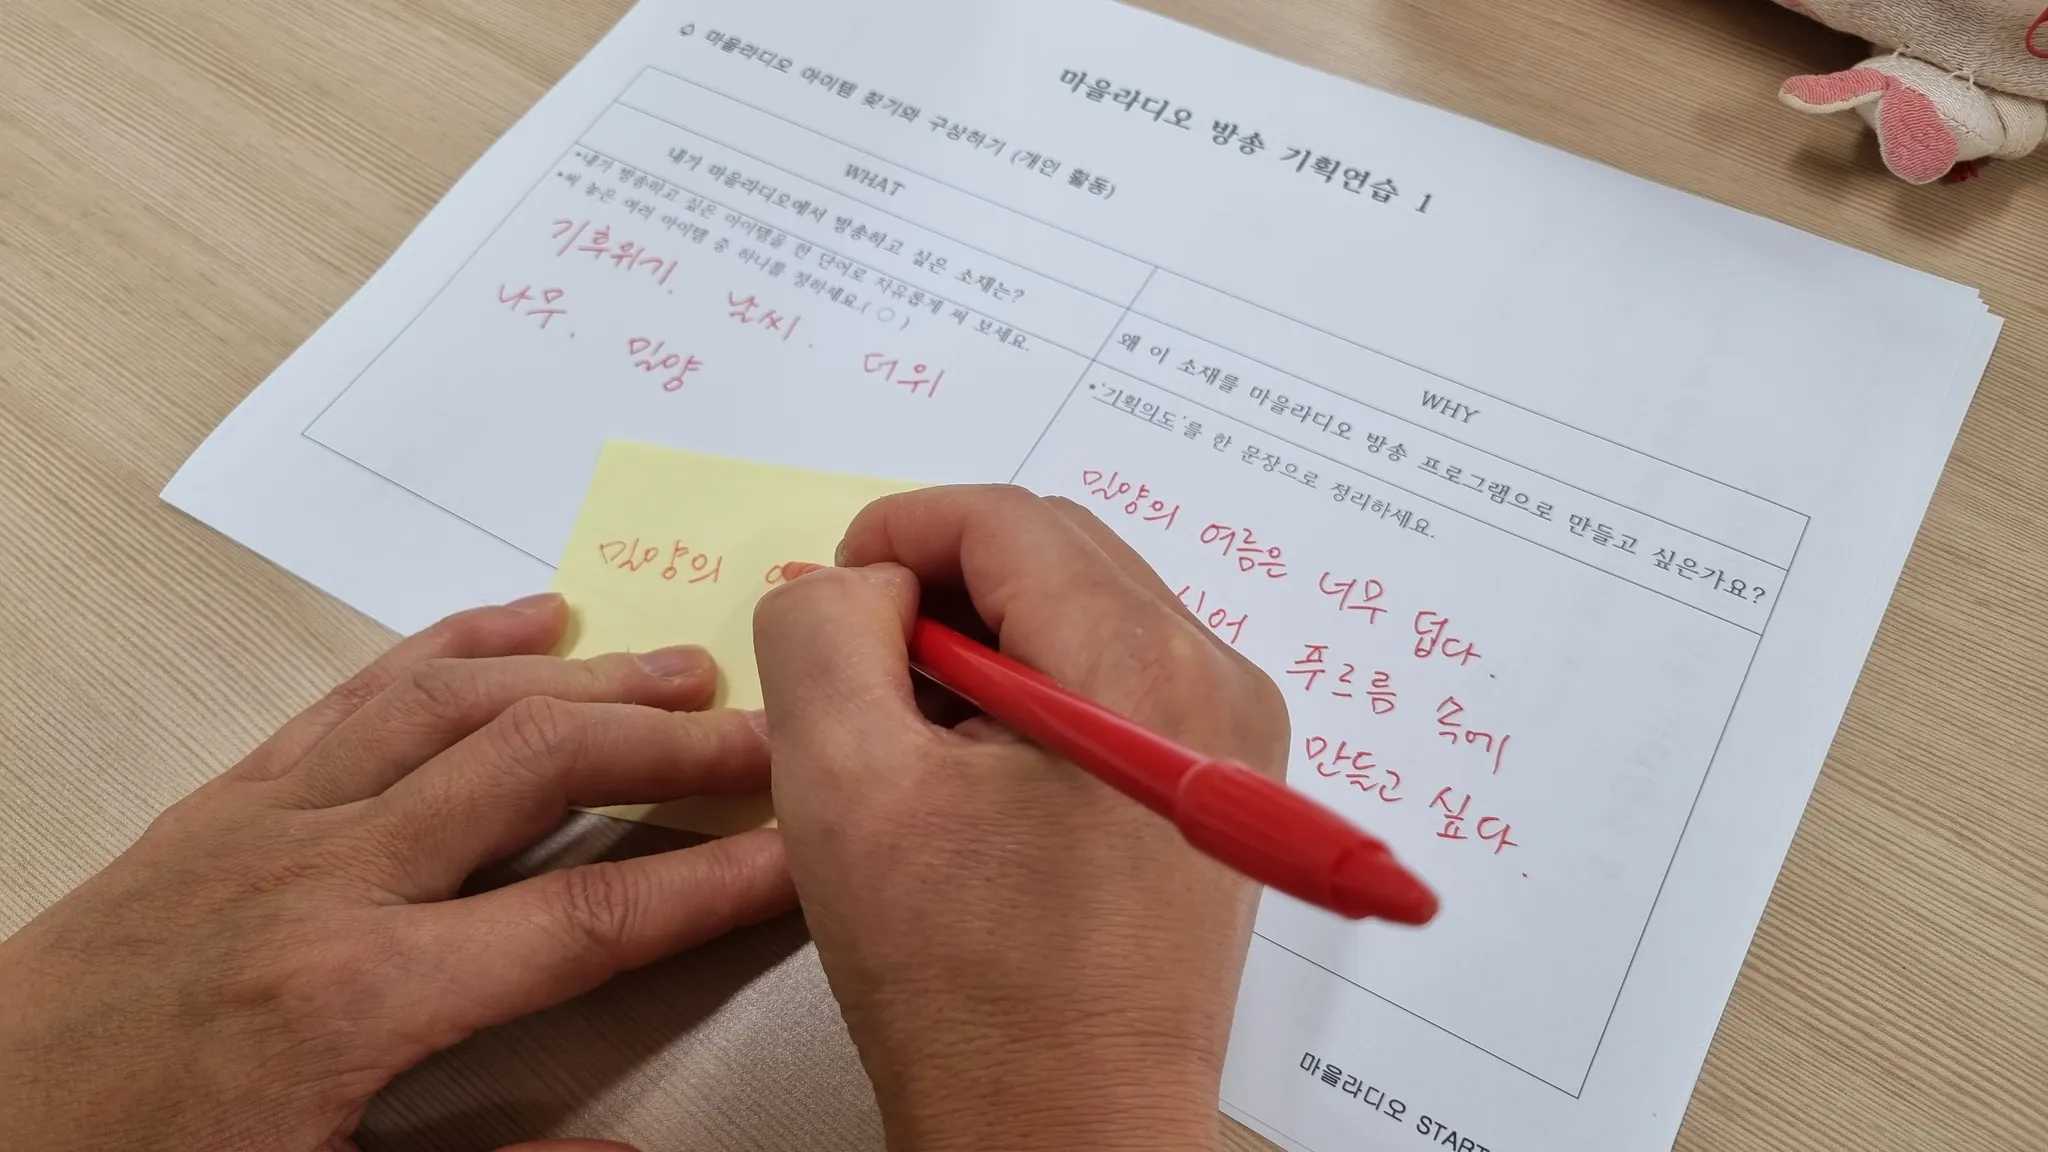 마을라디오 방송 기획연습 1
♤ 마을라디오 아이템 찾기와 구상하기 (개인 활동)
WHAT
내가 마을라디오에서 방송하고 싶은 소재는?
*내가 방송하고 싶은 아이템을 한 단어로 자유롭게 써 보세요.
*써 놓은 여러 아이템 중 하나를 정하세요.(○)
기후위기. 날씨. 더위
나무. 밀양
WHY
왜 이 소재를 마을라디오 방송 프로그램으로 만들고 싶은가요?
*'기획의도'를 한 문장으로 정리하세요.
밀양의 여름은 너무 덥다.
심어 푸르름 속에
만들고 싶다.
밀양의
마을라디오 START